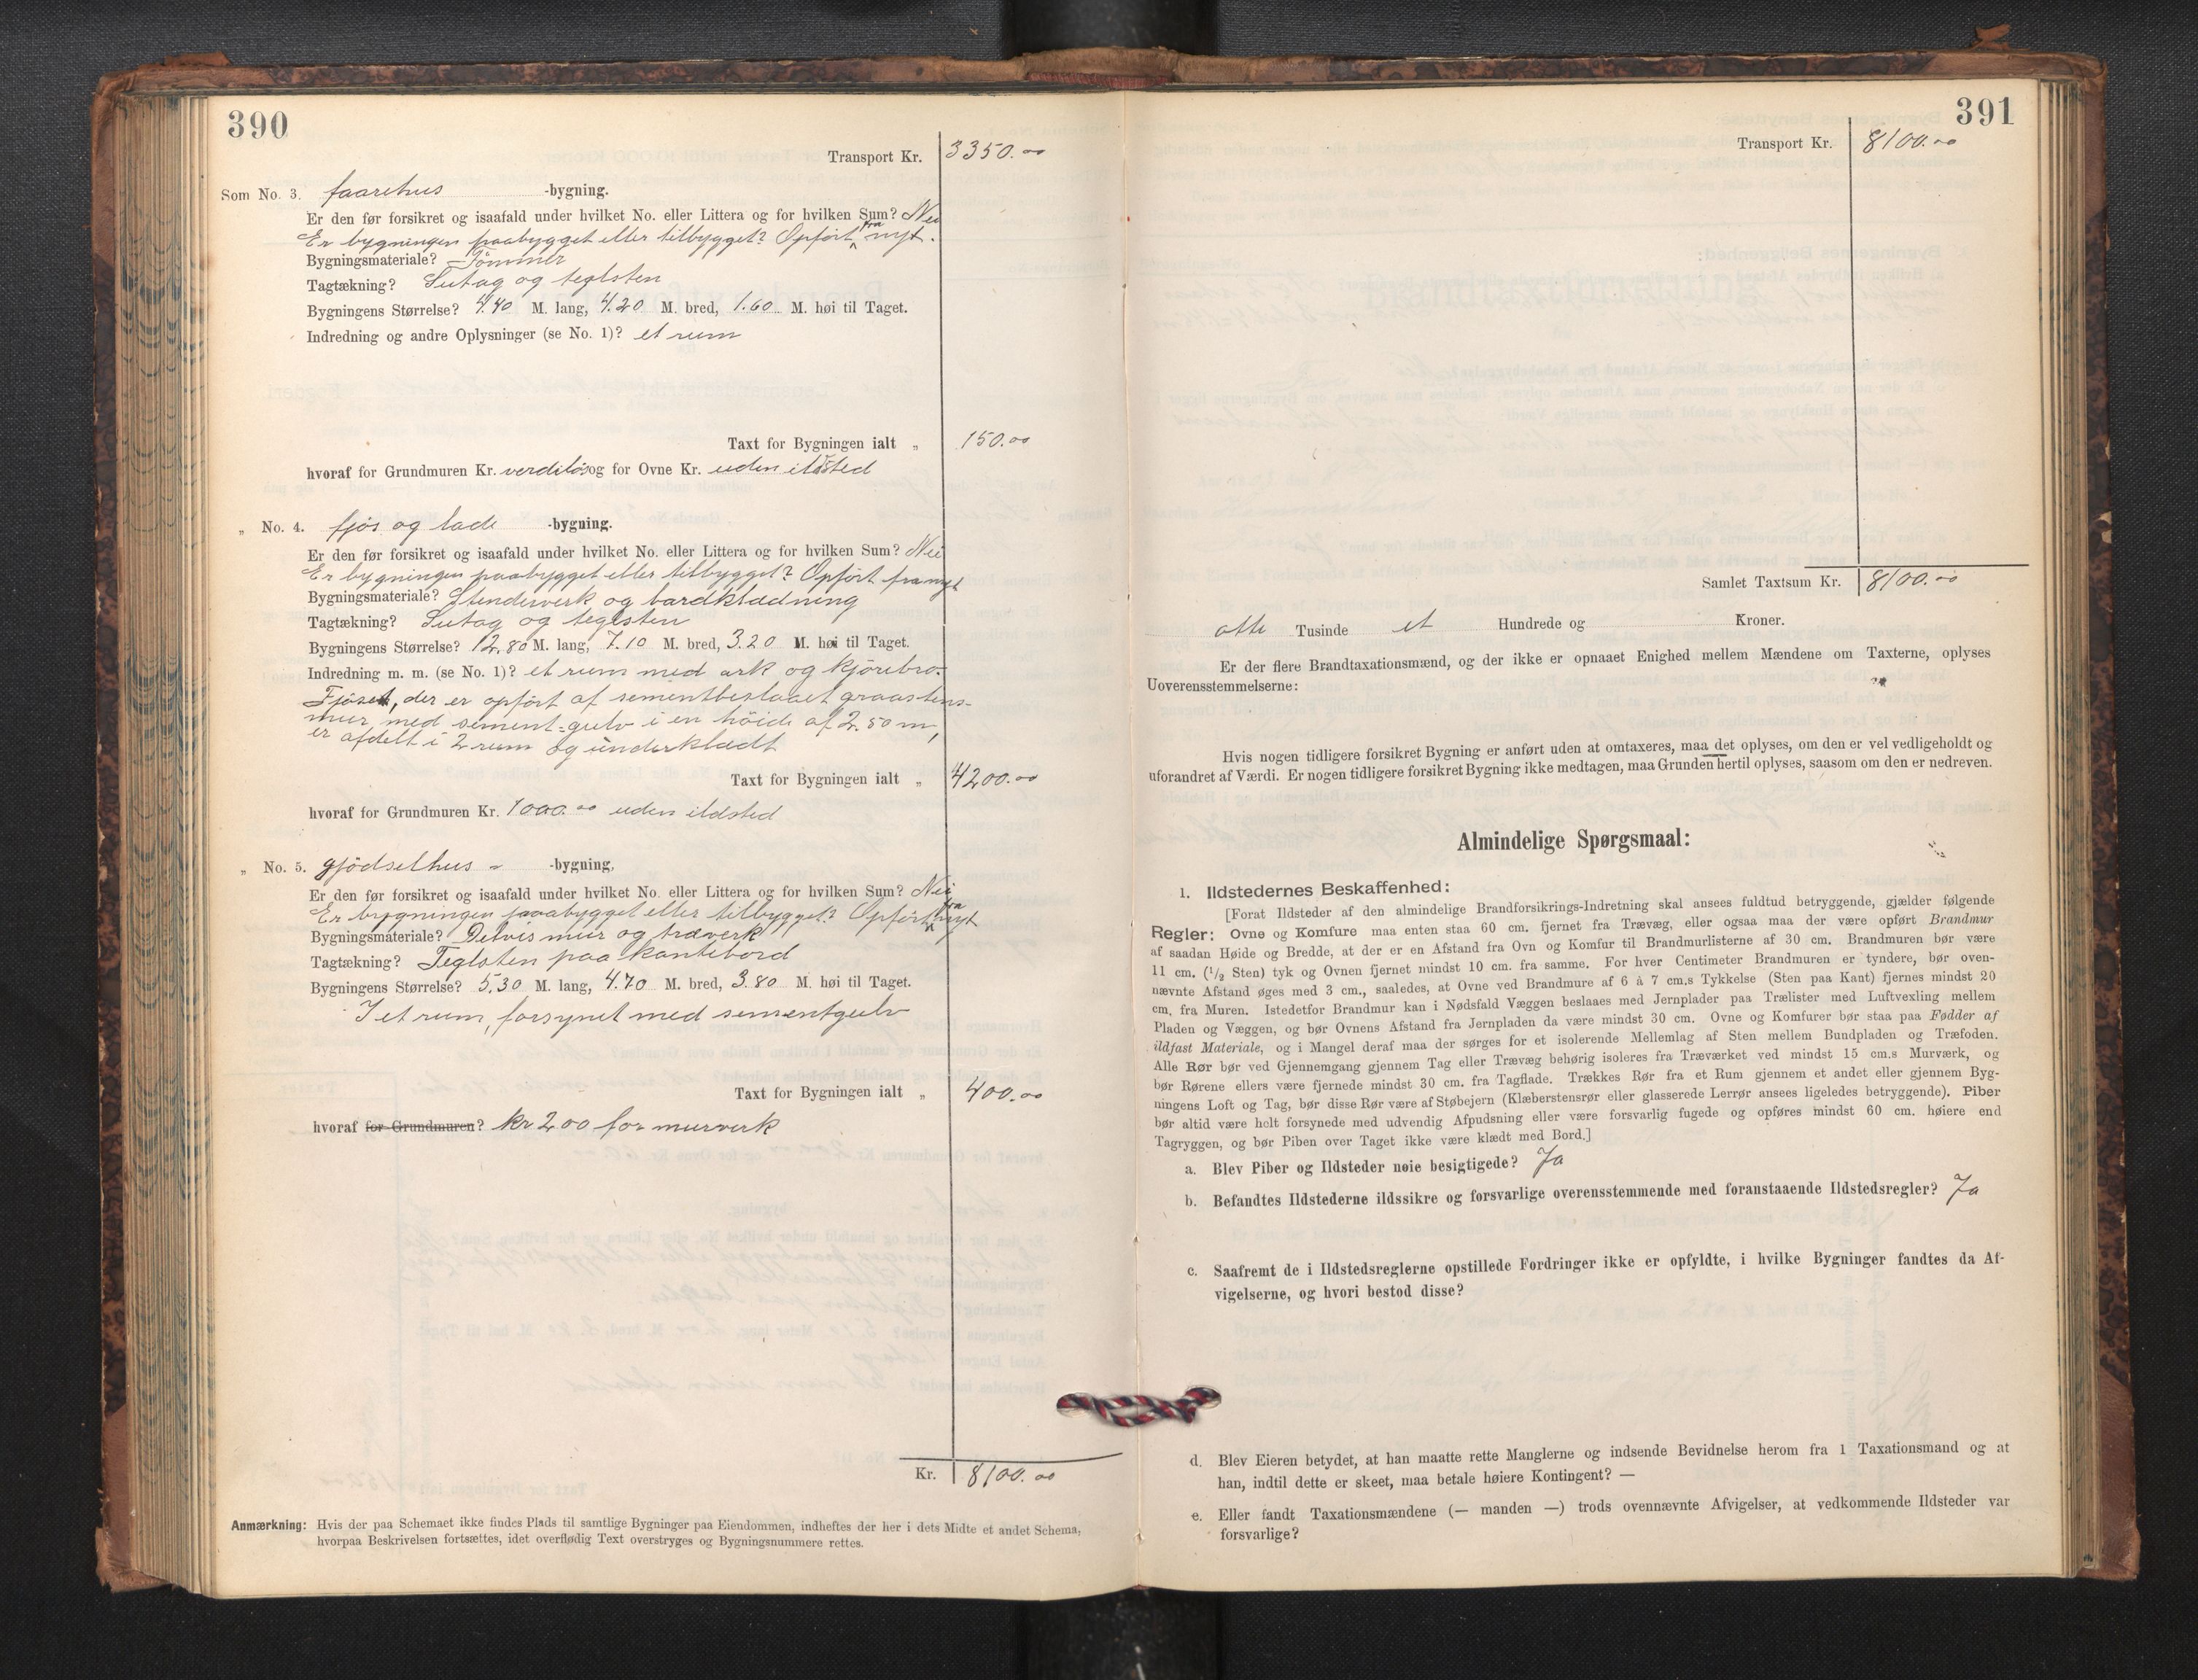 390
Transport Kr. 3350.00
Som No. 3. faarehus -bygning.
Er den før forsikret og isaafald under hvilket No. eller Littera og for hvilken Sum? Nei
Er bygningen paabygget eller tilbygget? Opført fra nyt.
Bygningsmateriale? Tømmer
Tagtækning? Sutag og teglsten
Bygningens Størrelse? 4.40 M. lang, 4.20 M. bred, 1.60 M. høi til Taget.
Indredning og andre Oplysninger (se No. 1)? et rum
Taxt for Bygningen ialt „ 150.00
hvoraf for Grundmuren Kr. verdiløs og for Ovne Kr. uden ildsted
„ No. 4. fjøs og lade -bygning.
Er den før forsikret og isaafald under hvilket No. eller Littera og for hvilken Sum? Nei
Er bygningen paabygget eller tilbygget? Opført fra nyt
Bygningsmateriale? Stenderverk og bordklædning
Tagtækning? Sutag og teglsten
Bygningens Størrelse? 12.80 M. lang, 7.10 M. bred, 3.20 M. høi til Taget.
Indredning m. m. (se No. 1)? et rum med ark og kjørebro.
Fjøset, der er opført af sementbeslaaet graastens-
mur med sement-gulv i en høide af 2.50 m,
er afdelt i 2 rum og underklædt
Taxt for Bygningen ialt „ 4200.00
hvoraf for Grundmuren Kr. 1000.00 uden ildsted
„ No. 5. gjødselhus - -bygning.
Er den før forsikret og isaafald under hvilket No. eller Littera og for hvilken Sum? Nei
Er bygningen paabygget eller tilbygget? Opført fra nyt
Bygningsmateriale? Delvis mur og træverk
Tagtækning? Teglsten paa kantebord
Bygningens Størrelse? 5.30 M. lang, 4.70 M. bred, 3.80 M. høi til Taget.
I et rum, forsynet med sementgulv
Taxt for Bygningen ialt „ 400.00
hvoraf for Grundmuren? kr 200 for murverk
Kr. 8100.00
Anmærkning: Hvis der paa Schemaet ikke findes Plads til samtlige Bygninger paa Eiendommen, indheftes der her i dets Midte et andet Schema,
hvorpaa Beskrivelsen fortsættes, idet overflødig Text overstryges og Bygningsnummere rettes.
391
Transport Kr. 8100.00
Samlet Taxtsum Kr. 8100.00
otte Tusinde et Hundrede og Kroner.
Er der flere Brandtaxationsmænd, og der ikke er opnaaet Enighed mellem Mændene om Taxterne, oplyses
Uoverensstemmelserne:
Hvis nogen tidligere forsikret Bygning er anført uden at omtaxeres, maa det oplyses, om den er vel vedligeholdt og
uforandret af Værdi. Er nogen tidligere forsikret Bygning ikke medtagen, maa Grunden hertil oplyses, saasom om den er nedreven.
Almindelige Spørgsmaal:
1. Ildstedernes Beskaffenhed:
[Forat Ildsteder af den almindelige Brandforsikrings-Indretning skal ansees fuldtud betryggende, gjælder følgende
Regler: Ovne og Komfure maa enten staa 60 cm. fjernet fra Trævæg, eller ogsaa maa der være opført Brandmur
af saadan Høide og Bredde, at der er en Afstand fra Ovn og Komfur til Brandmurlisterne af 30 cm. Brandmuren bør være
11 cm. (1/2 Sten) tyk og Ovnen fjernet mindst 10 cm. fra samme. For hver Centimeter Brandmuren er tyndere, bør oven-
nævnte Afstand øges med 3 cm., saaledes, at Ovne ved Brandmure af 6 à 7 cm.s Tykkelse (Sten paa Kant) fjernes mindst 20
cm. fra Muren. Istedetfor Brandmur kan i Nødsfald Væggen beslaaes med Jernplader paa Trælister med Luftvexling mellem
Pladen og Væggen, og bør Ovnens Afstand fra Jernpladen da være mindst 30 cm. Ovne og Komfurer bør staa paa Fødder af
ildfast Materiale, og i Mangel deraf maa der sørges for et isolerende Mellemlag af Sten mellem Bundpladen og Træfoden.
Alle Rør bør ved Gjennemgang gjennem Tag eller Trævæg behørig isoleres fra Træværket ved mindst 15 cm.s Murværk, og
bør Rørene ellers være fjernede mindst 30 cm. fra Tagflade. Trækkes Rør fra et Rum gjennem et andet eller gjennem Byg-
ningens Loft og Tag, bør disse Rør være af Støbejern (Klæberstensrør eller glasserede Lerrør ansees ligeledes betryggende). Piber
bør altid være helt forsynede med udvendig Afpudsning eller være forsvarlig fugede og opføres mindst 60 cm. høiere end
Tagryggen, og bør Piben over Taget ikke være klædt med Bord.]
a. Blev Piber og Ildsteder nøie besigtigede? Ja
b. Befandtes Ildstederne ildssikre og forsvarlige overensstemmende med foranstaaende Ildstedsregler? Ja
c. Saafremt de i Ildstedsreglerne opstillede Fordringer ikke er opfyldte, i hvilke Bygninger fandtes da Af-
vigelserne, og hvori bestod disse?
d. Blev Eieren betydet, at han maatte rette Manglerne og indsende Bevidnelse herom fra 1 Taxationsmand og at
han, indtil dette er skeet, maa betale høiere Kontingent? —
e. Eller fandt Taxationsmændene (— manden —) trods ovennævnte Afvigelser, at vedkommende Ildsteder var
forsvarlige?